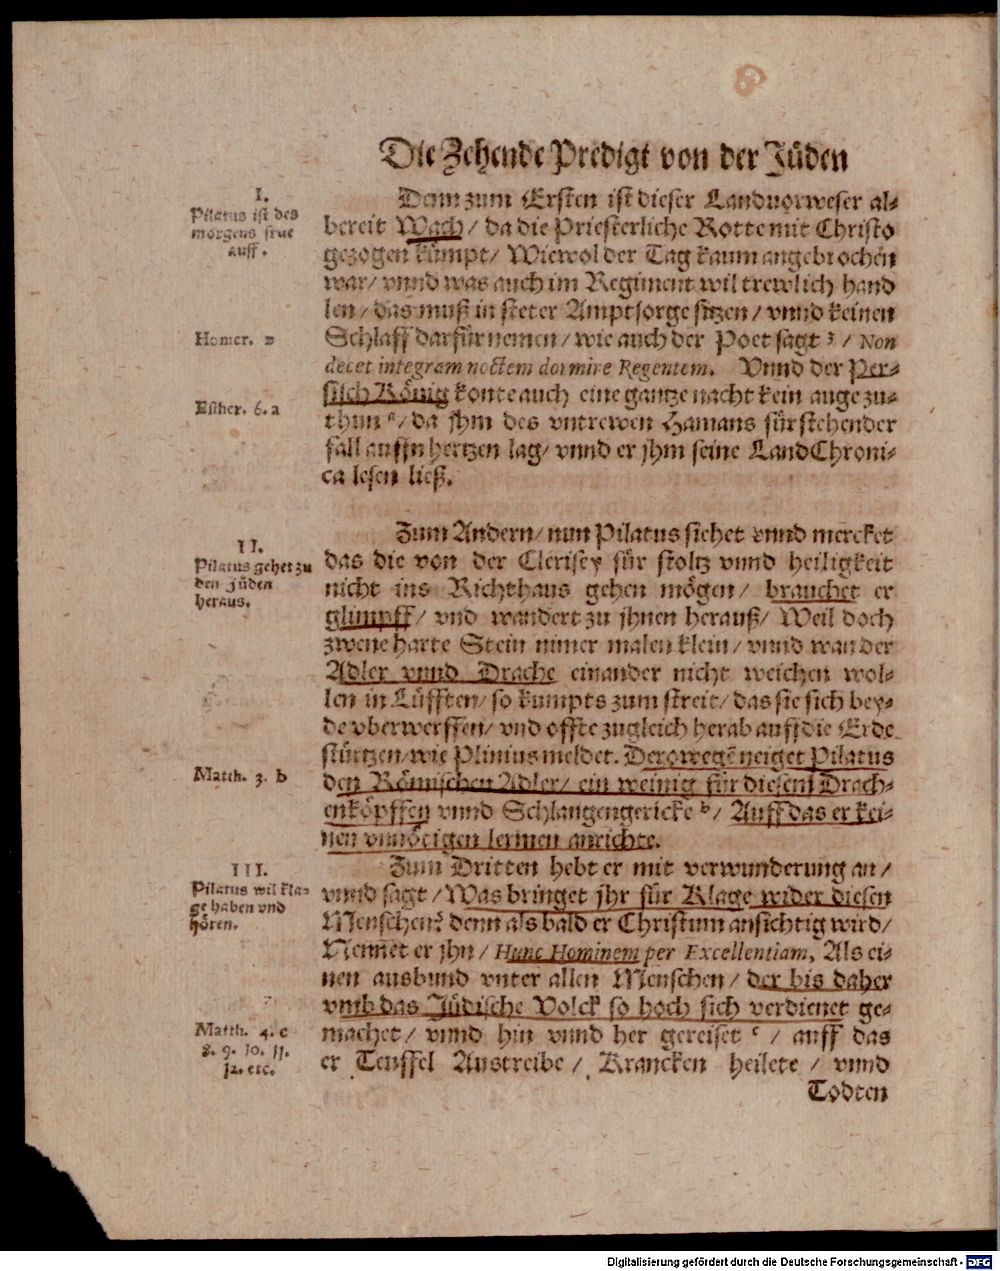 Die Zehende Predigt von der Jüden
I.
Pilatus ist des
morgens frue
auff.
Denn zum Ersten ist dieser Landvorweser al-
bereit Wach / da die Priesterliche Rotte mit Christo
gezogen kümpt / Wiewol der Tag kaum angebrochen
war / vnnd was auch im Regiment wil trewlich hand
len / das muß in steter Amptsorge sitzen / vnnd keinen
Homer.
Schlaff darfür nemen / wie auch der Poet sagt / Non
decet integram noctem dormire Regentem. Vnnd der Per-
sisch König konte auch eine gantze nacht kein auge zu-
Esther. 6. a
thun a / da jhm des vntrewen Hamans fürstehender
fall auffn hertzen lag / vnnd er jhm seine LandChroni-
ca lesen ließ.
II.
Pilatus gehet zu
den Jüden
heraus.
Zum Andern / nun Pilatus siehet vnnd mercket
das die von der Clerisey für stoltz vnnd heiligkeit
nicht ins Richthaus gehen mögen / brauchet er
glimpff / vnd wandert zu jhnen herauß / Weil doch
zwene harte Stein nimer malen klein / vnnd wan der
Adler vnnd Drache einander nicht weichen wol-
len in Lüfften / so kumpts zum streit / das sie sich bey-
de vberwerffen / vnd offte zugleich herab auff die Erde
stürtzen / wie Plinius meldet. Derowegē neiget Pilatus
Matth. 3. b
den Römischen Adler / ein weinig für diesem Drach-
enköpffen vnnd Schlangengericke b / Auff das er kei-
nen vnnötigen lermen anrichte.
III.
Pilatus wil kla-
ge haben vnd
hören.
Zum Dritten hebt er mit verwunderung an /
vnnd sagt / Was bringet jhr für Klage wider diesen
Menschen? denn als bald er Christum ansichtig wird /
Nennet er jhn / Hunc Hominem per Excellentiam, Als ei-
nen ausbund vnter allen Menschen / der bis daher
vmb das Jüdische Volck so hoch sich verdienet ge-
Matth. 4. c
8. 9. 10. 11.
12. etc.
machet / vnnd hin vnnd her gereiset c / auff das
er Teuffel Austreibe / Krancken heilete / vnnd
Todten
Digitalisierung gefördert durch die Deutsche Forschungsgemeinschaft - DFG